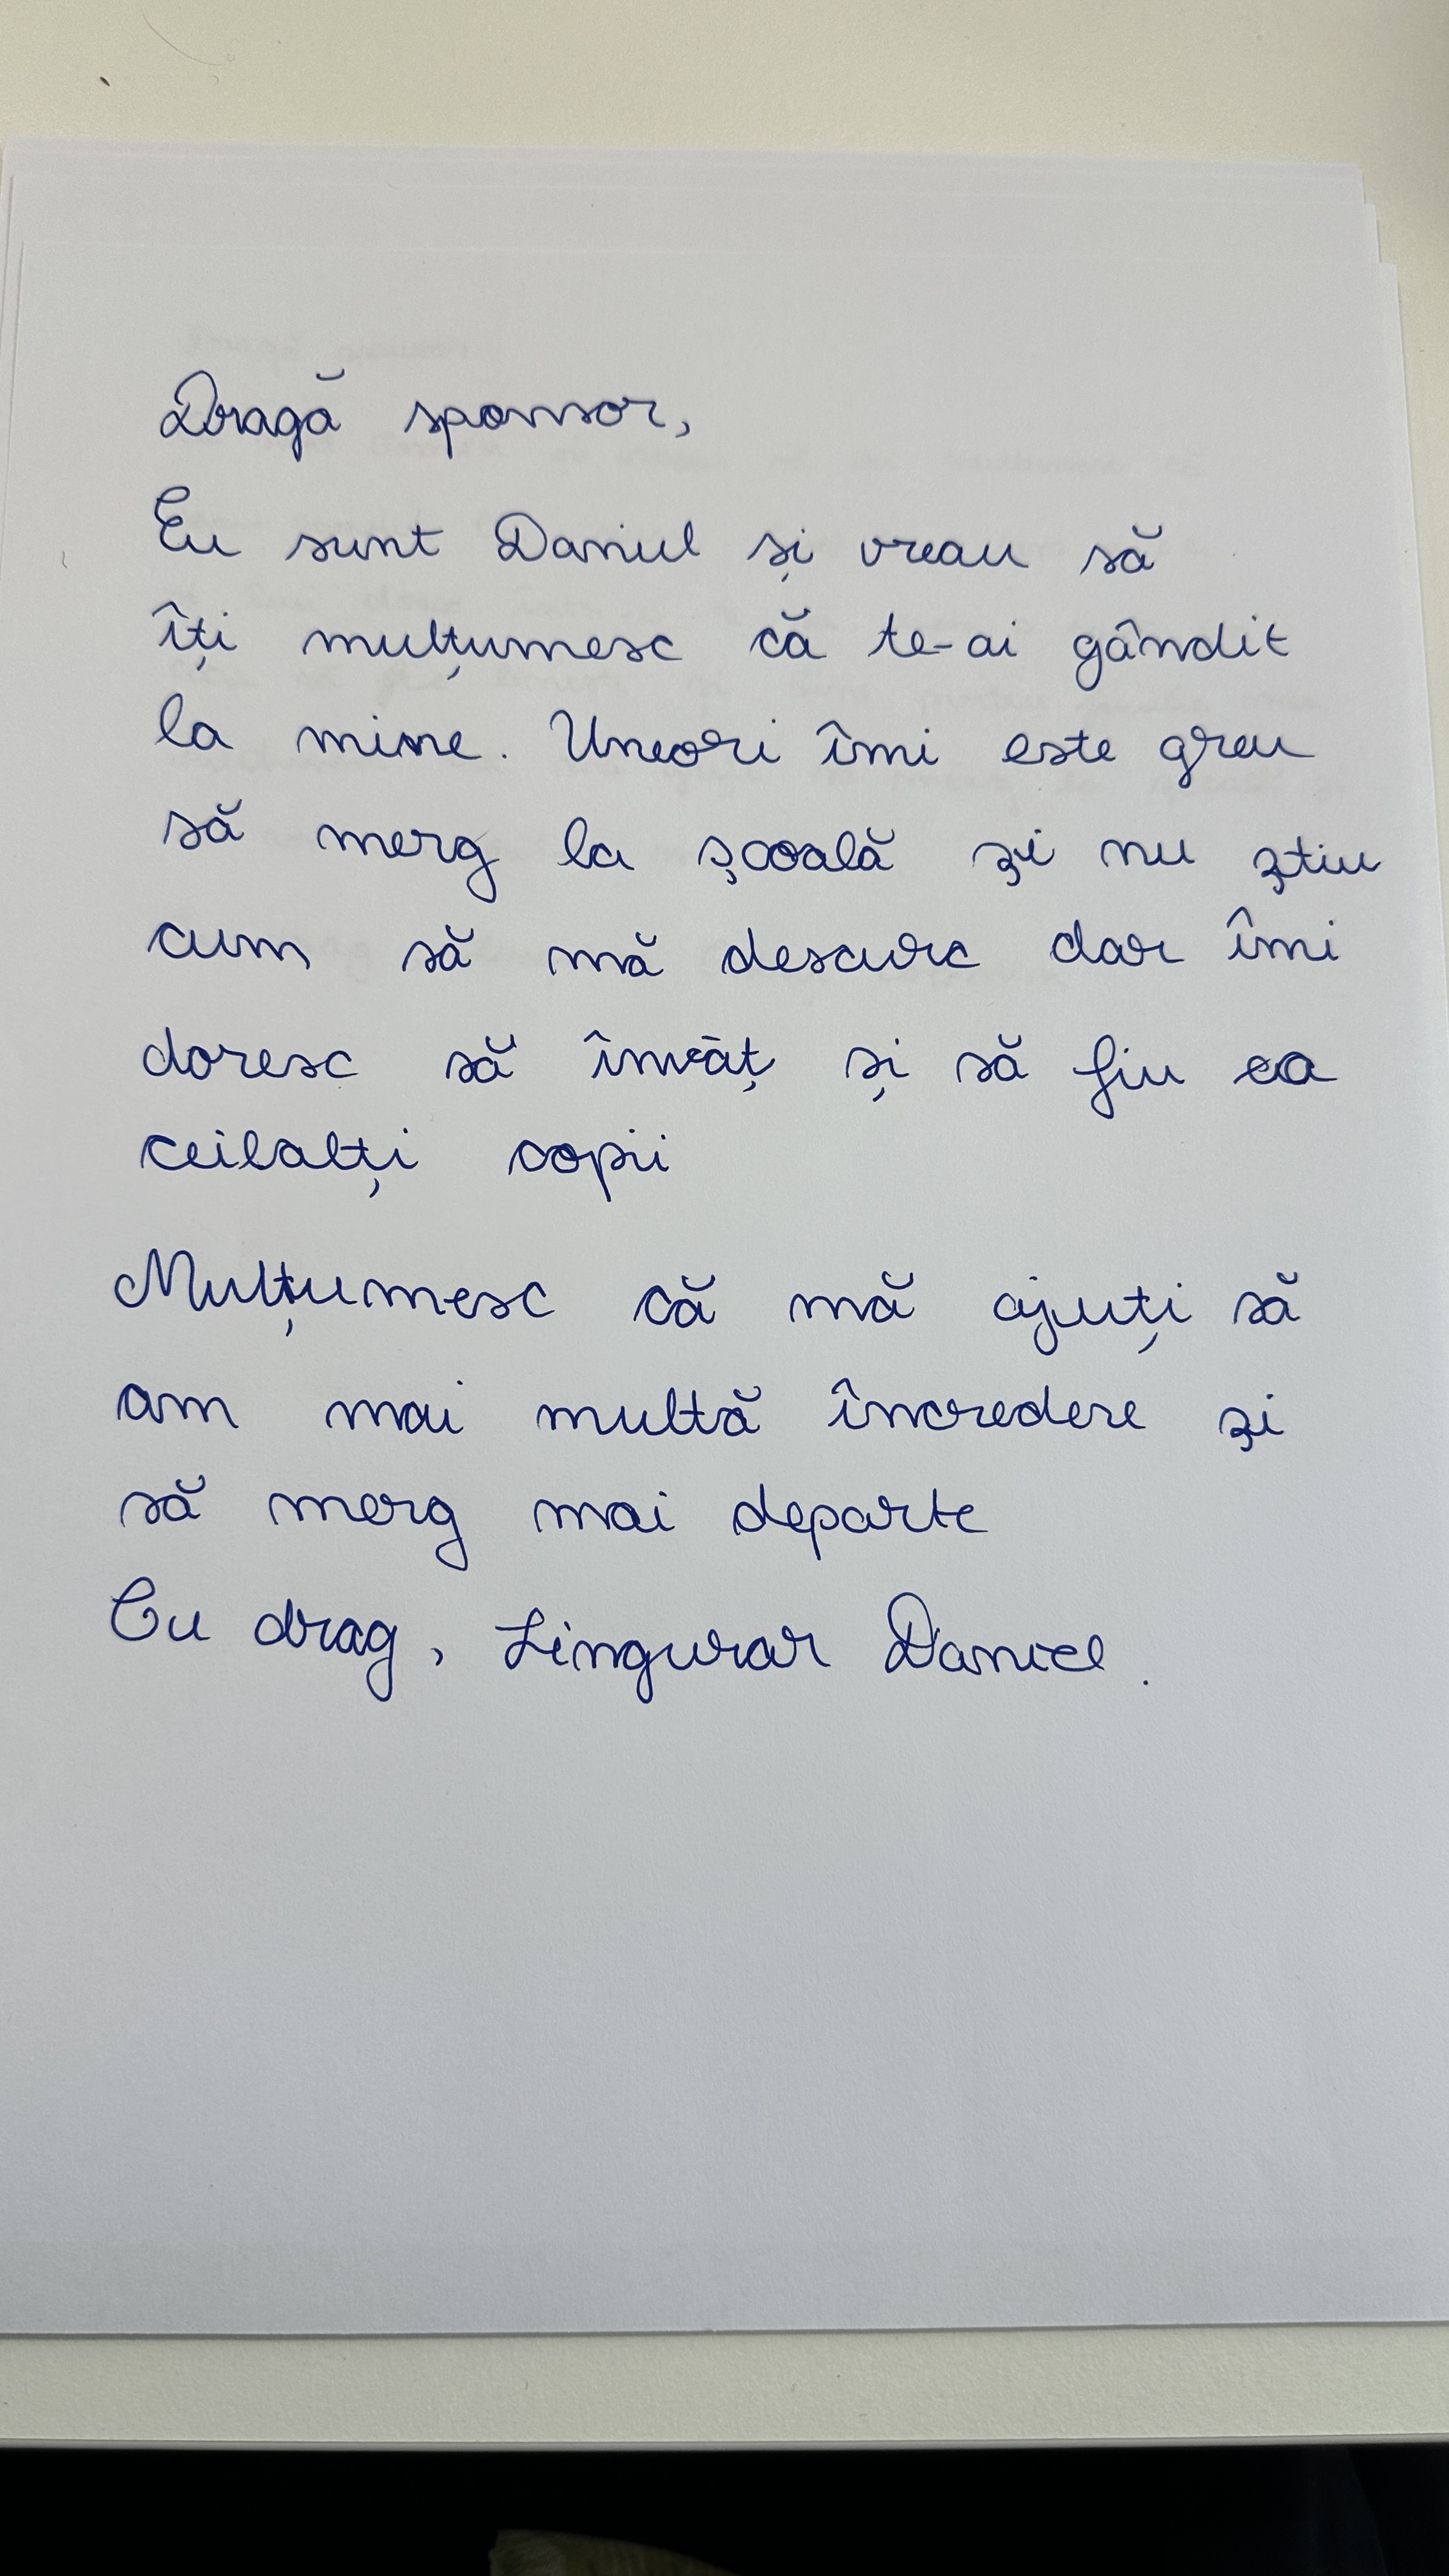 Dragă sponsor,
Eu sunt Daniel și vreau să
îți mulțumesc că te-ai gândit
la mine. Uneori îmi este greu
să merg la școală și nu știu
cum să mă descurc dar îmi
doresc să învăț și să fiu ca
ceilalți copii
Mulțumesc că mă ajuți să
am mai multă încredere și
să merg mai departe
Cu drag, Lingurar Daniel.